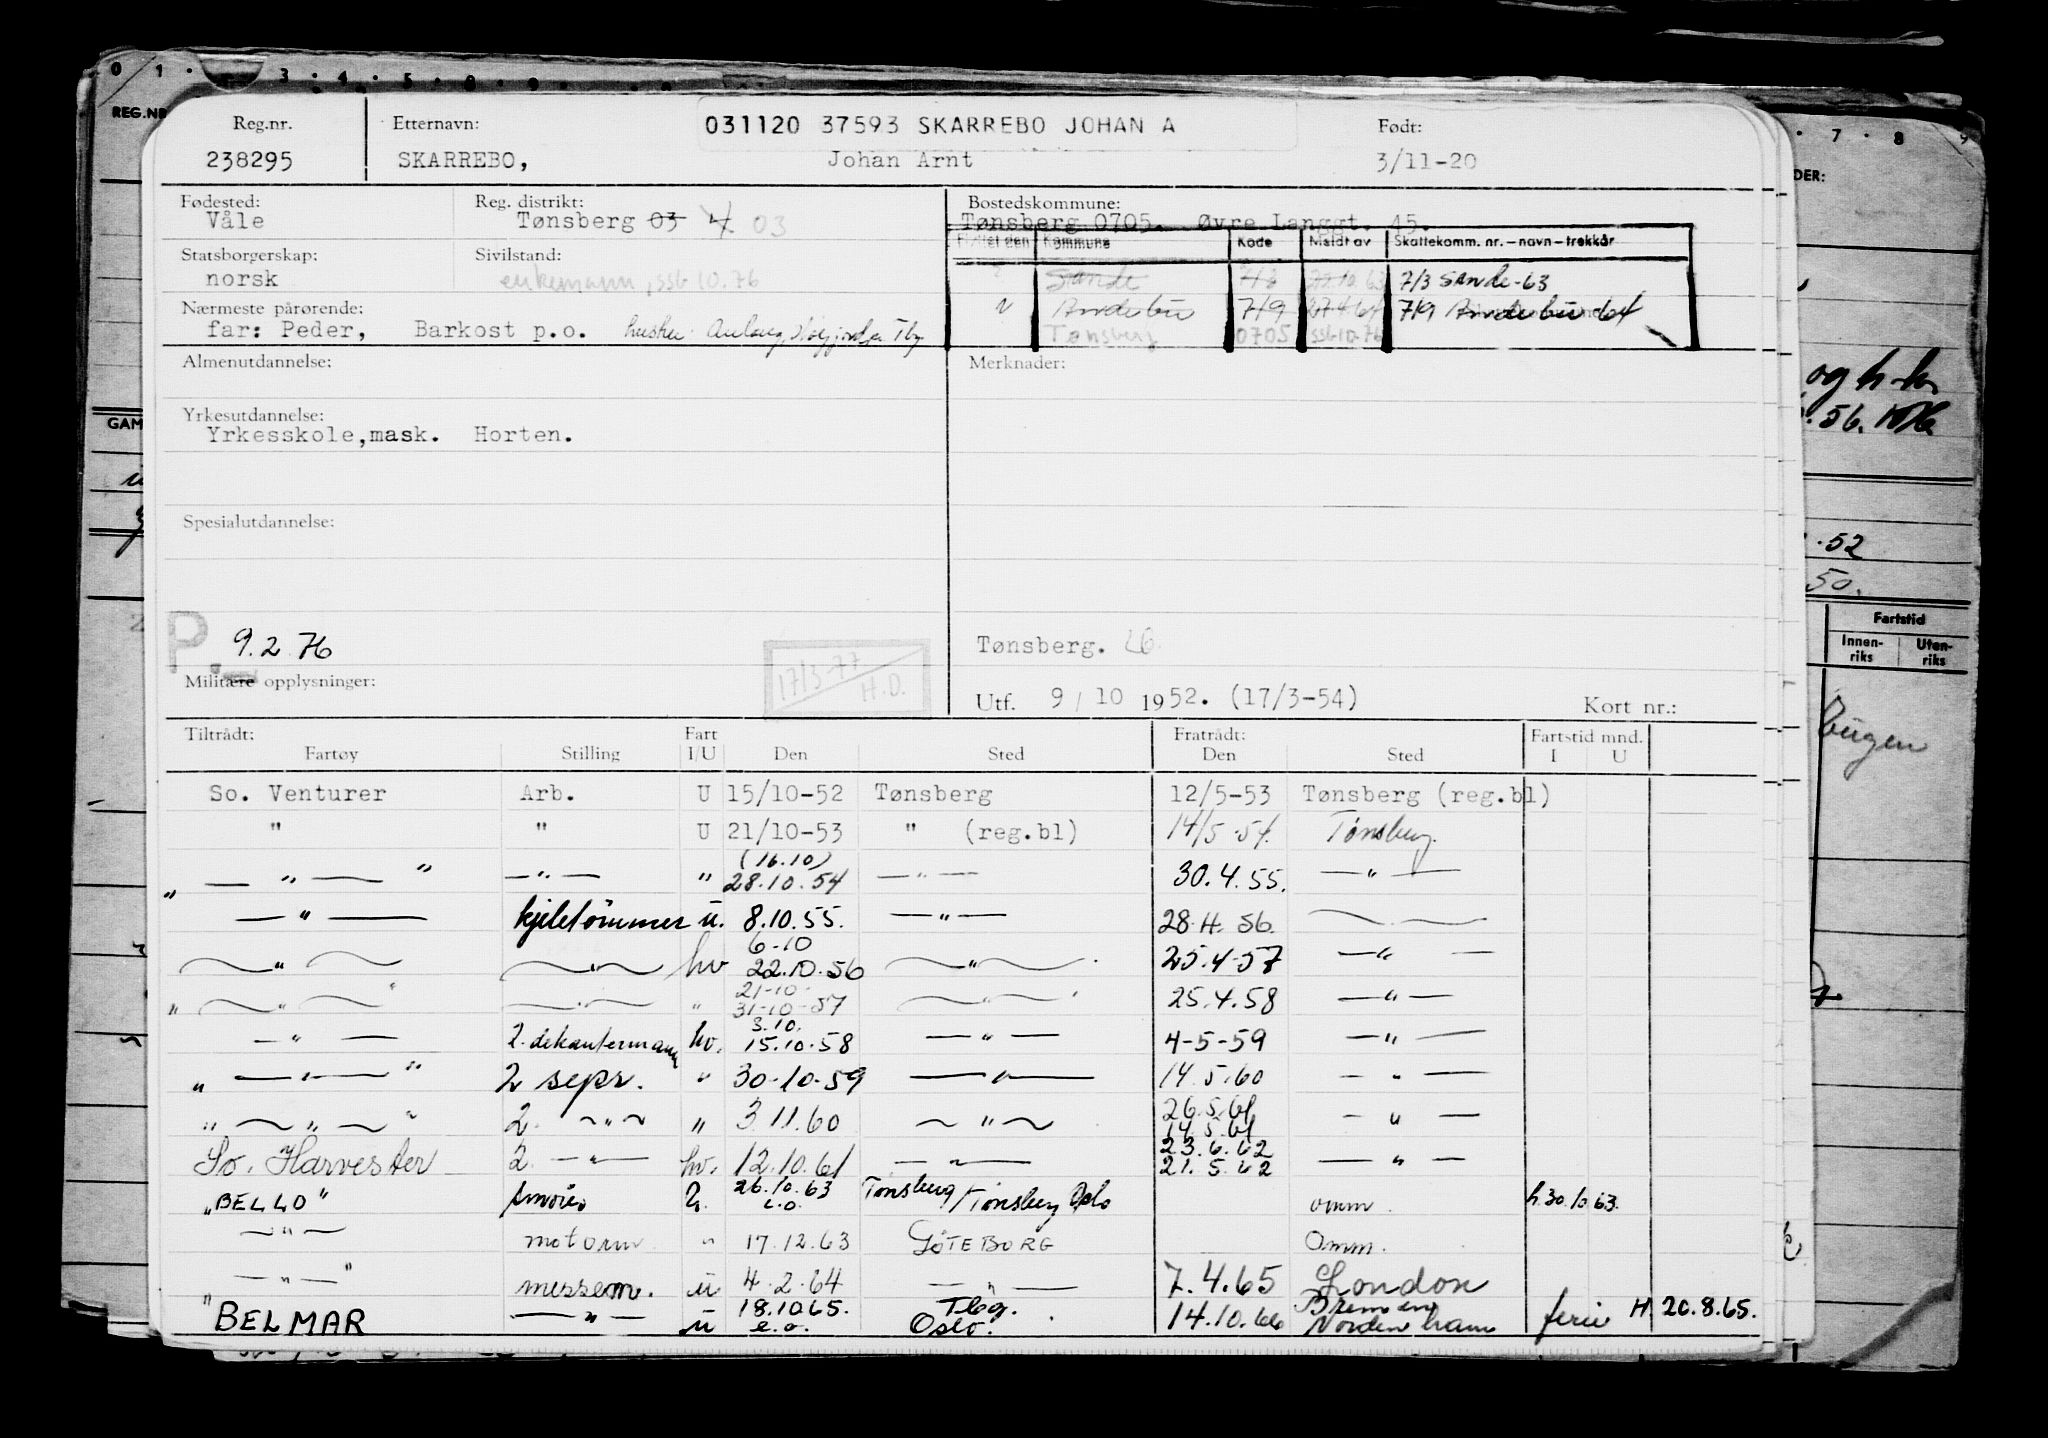 Reg.nr. Etternavn: 031120 37593 SKARREBO JOHAN A Født:
238295 SKARREBO, Johan Arnt 3/11-20
Fødested: Reg. distrikt: Bostedskommune:
Våle Tønsberg 03 4 03 Tønsberg 0705. Øvre Langgt. 45.
Flyttet den Kommune Kode Meldt av Skattekomm. nr. – navn – trekkår
Statsborgerskap: Sivilstand:
norsk enkemann, ssb 10.76 Sande 7/3 63 7/3 Sande-63
Nærmeste pårørende: Andebu 7/9 27 4 64 7/9 Andebu 64
far: Peder, Barkost p.o. Tønsberg 0705 ssb 10.76
Almenutdannelse: Merknader:
Yrkesutdannelse:
Yrkesskole, mask. Horten.
Spesialutdannelse:
P. 9.2.76 Tønsberg.
17/3-77
H.D.
Militære opplysninger:
Utf. 9/10 1952. (17/3-54) Kort nr.:
Tiltrådt: Fart Fratrådt: Fartstid mnd.
Fartøy Stilling I/U Den Sted Den Sted I U
So. Venturer Arb. U 15/10-52 Tønsberg 12/5-53 Tønsberg (reg.bl)
" " U 21/10-53 " (reg.bl) 14/5-54 Tønsberg.
(16.10)
" — " — " — " — " 28.10.54 — " — 30.4.55. — " —
— " — kjeletømmer u. 8.10.55. — " — 28.4.56. —
6-10
— " — — " — hv 22.10.56 — " — 25.4-57 — " —
21-10
" — " — " — " — " 31-10-57 — " — 25.4.58 — " —
3.10.
— " — 2. dekantermann hv. 15.10.58 — " — 4-5-59 — " —
" — " — " 2 sepr. " 30-10-59 — " — 14.5.60 — " —
26.5.61
" — " — " 2. — " — " 3.11.60 — " — 14.5.61 — " —
23.6.62
So. Harvester 2. — " — hv. 12.10.61 — " — 21.5.62 — " —
"BELLO" smører U. 26.10.63 Tønsberg/Tønsberg Oslo omm. h 30.10.63.
e.o.
— " — motorm " 17.12.63 GÖTEBORG Omm.
" — " — " messem. u 4.2.64 — " — 7.4.65 London
18.10.65. Tbg. Bremen
BELMAR — " — u e.o. Oslo. 14.10.66 Nordenham ferie H. 20.8.65.
REG.NR
GAM
DER:
og h
.56.
.52
50.
Fartstid
Innen-
riks
Uten-
riks